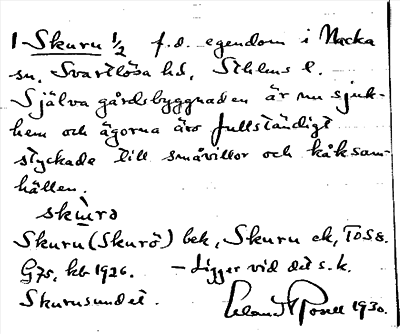 1 Skuru ½ f.d. egendom i Nacka
sn, Svartlösa hd, Sthlms l.
Själva gårdsbyggnaden är nu sjuk-
hem och ägorna äro fullständigt
styckade till småvillor och kåksam-
hällen.
skùrə
Skuru (Skurö) bek, Skuru ek,
G75, kb 1926. – Ligger vid det s.k.
Skurusundet. 1930.